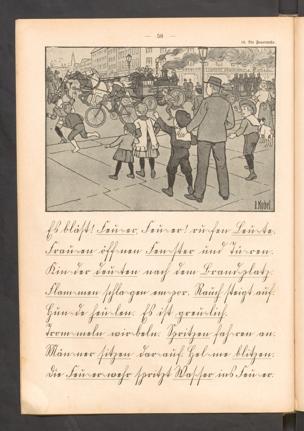 — 50 —
10. Die Feuerwehr.
A. Nobel
Es bläst! Feu-er, Feu-er! ru-fen Leu-te.
Frau-en öff-nen Fen-ster und Tü-ren.
Kin-der deu-ten nach dem Brandplatz.
Flam-men schla-gen em-por. Rauch steigt auf.
Hun-de heu-len. Es ist greu-lich.
Trom-meln wir-beln. Spritzen fah-ren an.
Män-ner sitzen dar-auf. Hel-me blitzen.
Die Feu-er-wehr spritzt Was-ser ins Feu-er.